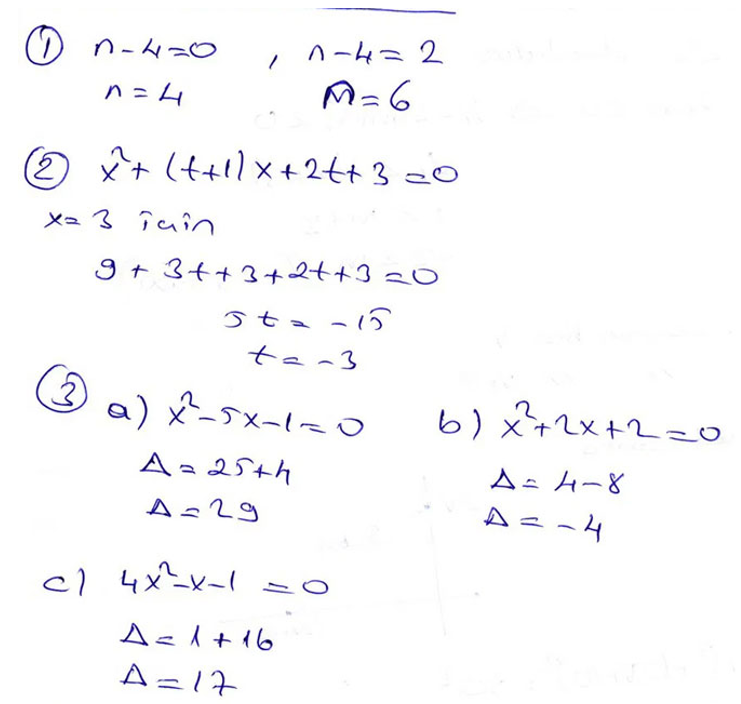 ① n-4=0 , n-4=2
n=4 m=6
② x²+(t+1)x+2t+3=0
x=3 için
9+3t+3+2t+3=0
5t=-15
t=-3
③ a) x²-5x-1=0 b) x²+2x+2=0
Δ=25+4 Δ=4-8
Δ=29 Δ=-4
c) 4x²-x-1=0
Δ=1+16
Δ=17